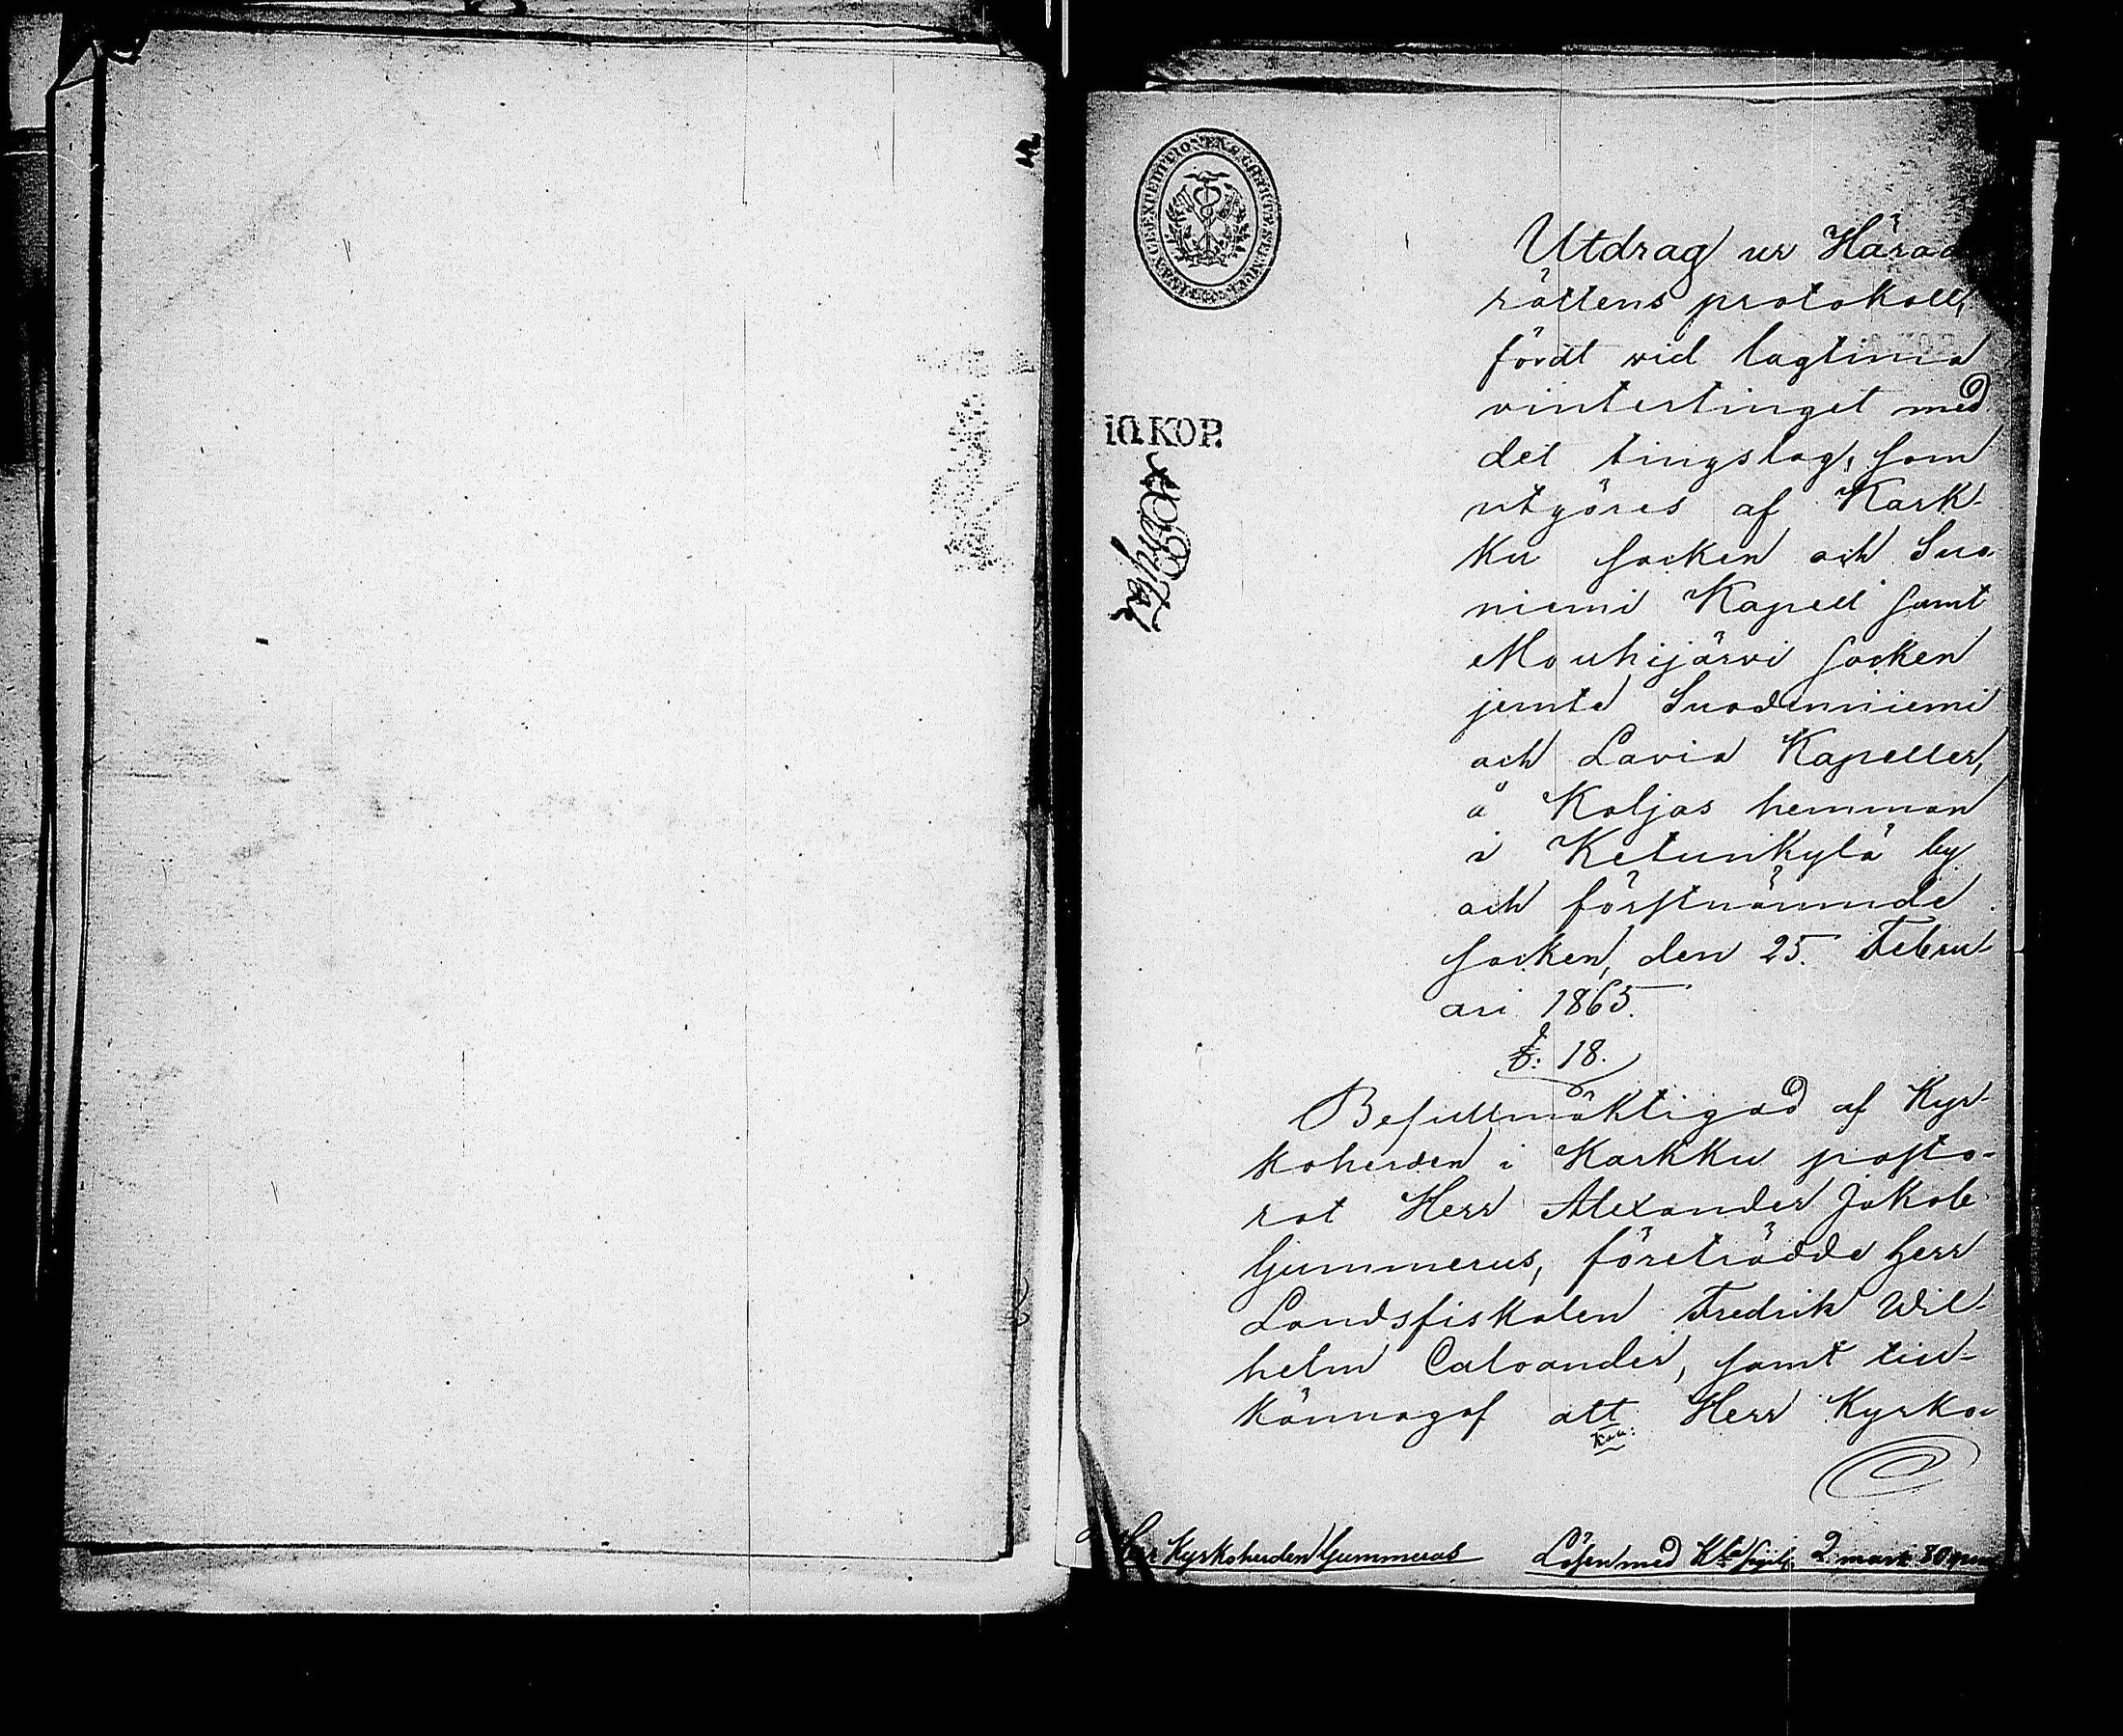 10.KOP.
Utdrag ur Härads
rättens protokoll,
fördt vid lagtima
vintertinget med
det tingslag, som
utgöres af Kark-
ku socken och Suo
niemi Kapell samt
Mouhijärvi socken
jemte Suodenniemi
och Lavia Kapeller,
å Koljas hemman
i Ketunkylä by
och förstnämnde
socken, den 25. Febru-
ari 1865.
§: 18.
Befullmäktigad af Kyr-
koherden i Karkku pasto-
rat Herr Alexander Jakob
Gummerus, företrädde herr
Landsfiskalen Fredrik Wil-
helm Calvander, samt till-
kännagaf att Herr Kyrko-
Herr Kyrkoherden Gummerus Lösen med 2 mark 80 penni